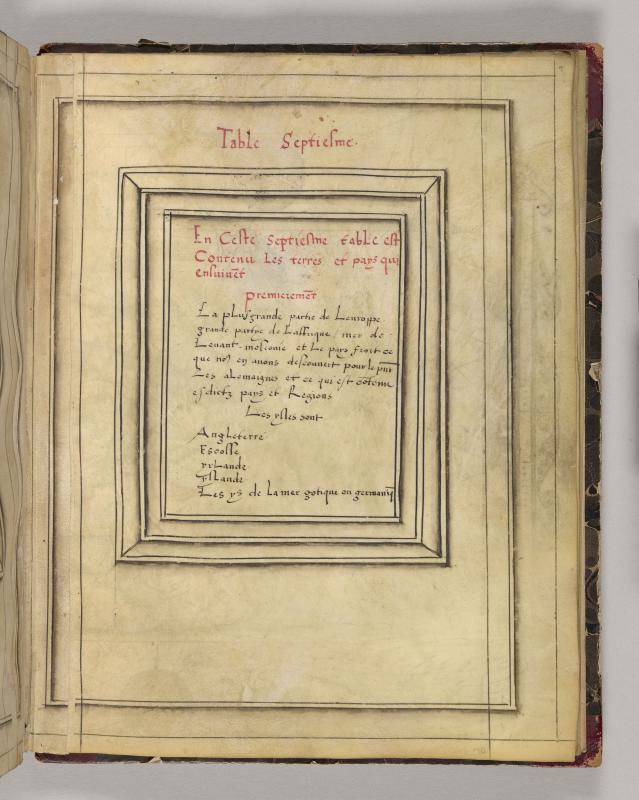 Table Septiesme.
En Ceste Septiesme table est
Contenu Les terres et pays qui
ensuivēt
premieremēt
La plus grande partie de Leuroppe
grande partye de Laffrique / mer de
Levant . moscovie et Le pays froit ce
que noˢ en avons descouvert pour le pn̄t
Les alemaignes et ce qui est cōtenu
esdictz pays et Regions
Les ysles sont
Angleterre
Escosse
yrLande
ysLande
Les ys de La mer gotique ou germanīq